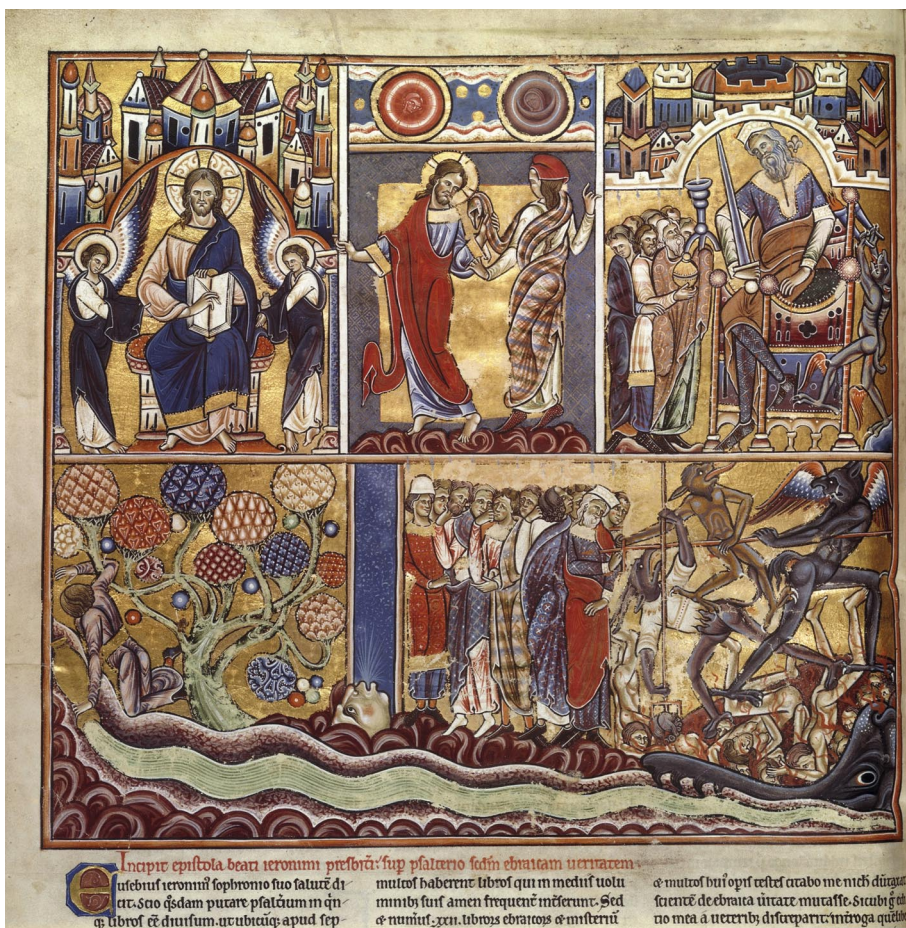 Incipit epistola beati ieronimi presbiti: sup psalterio scdm ebraicam ueritatem
Eusebius ieronim sophronio suo salutē di
cit. Scio qsdam putare psaltium in qn
q libros eē diuisum. ut ubicūq; apud sep
multos haberent libros qui in mediis uolu
minib; suis amen frequent inserunt. Sed
& numis .xxii. libroꝝ ebraicoꝝ & misteriū
& multos hui opis testes citabo me nich
sciente de ebraica ūitate mutasse. Sicubi g
tio mea a ueterib; discreparit: introga